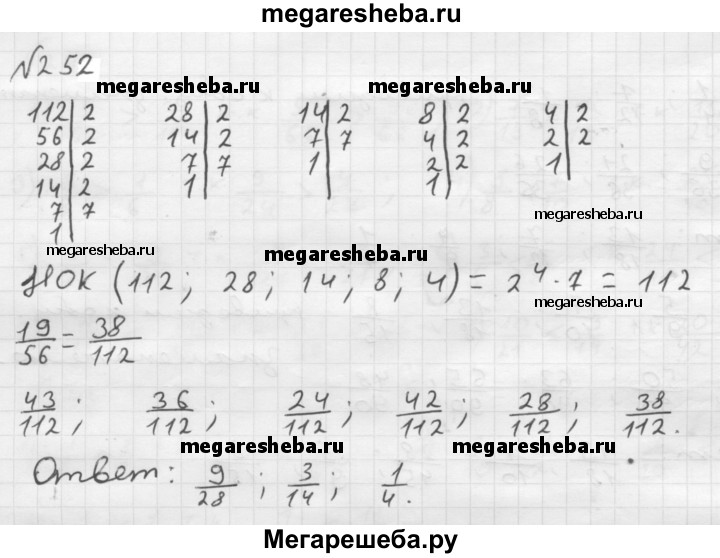 megaresheba.ru
№252
megaresheba.ru megaresheba.ru
112|2 28|2 14|2 8|2 4|2
56|2 14|2 7|7 4|2 2|2
28|2 7|7 1| 2|2 1|
14|2 1| 1|
7|7
1|
megaresheba.ru
megaresheba.ru
megaresheba.ru
НОК (112; 28; 14; 8; 4) = 2⁴·7 = 112
19/56 = 38/112
43/112; 36/112; 24/112; 42/112; 28/112; 38/112.
megaresheba.ru megaresheba.ru
Ответ: 9/28; 3/14; 1/4.
Мегарешеба.ру